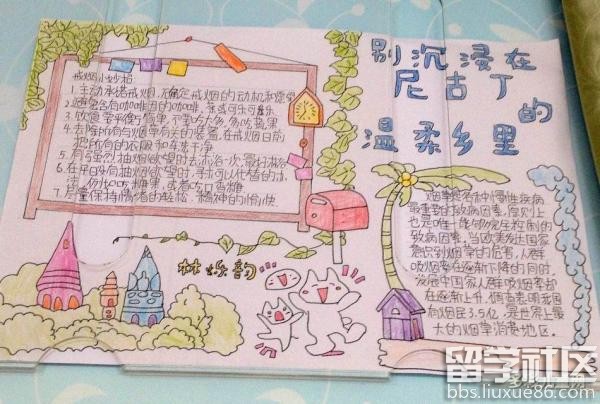 别沉浸在
尼古丁
的
温柔乡里
戒烟小妙招
1. 主动承诺戒烟,不
戒烟的动机和愿望
2. 避免含有咖啡因的咖啡、茶或可乐
3. 饮食
不要吃太多,多吃蔬果
4. 去除所有与烟草有关的装置,在戒烟日前
把所有的衣服和车洗干净
5. 有强烈抽烟欲望时去沐浴一次
6. 在
有抽烟欲望时,
的冰
糖果,或者
口香糖
7. 尽量保持情绪的轻松,精神的愉快
林焕韵
烟草是各种慢性疾病
最重要的致病因素,原则上
也是唯一能够完全控制的
致病因素,当欧美发达国家
意识到烟草的危害,人群
吸烟率在逐渐下降的同时,
发展中国家人群吸烟率却
在逐渐上升,调查表明我国
有烟民3.5亿,是世界上最
大的烟草消费地区。
留学社区
bbs.liuxue86.com